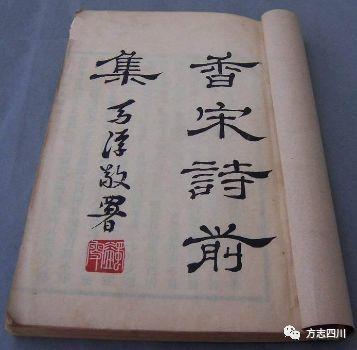 香宋詩前
集
馬浮敬署
方志四川